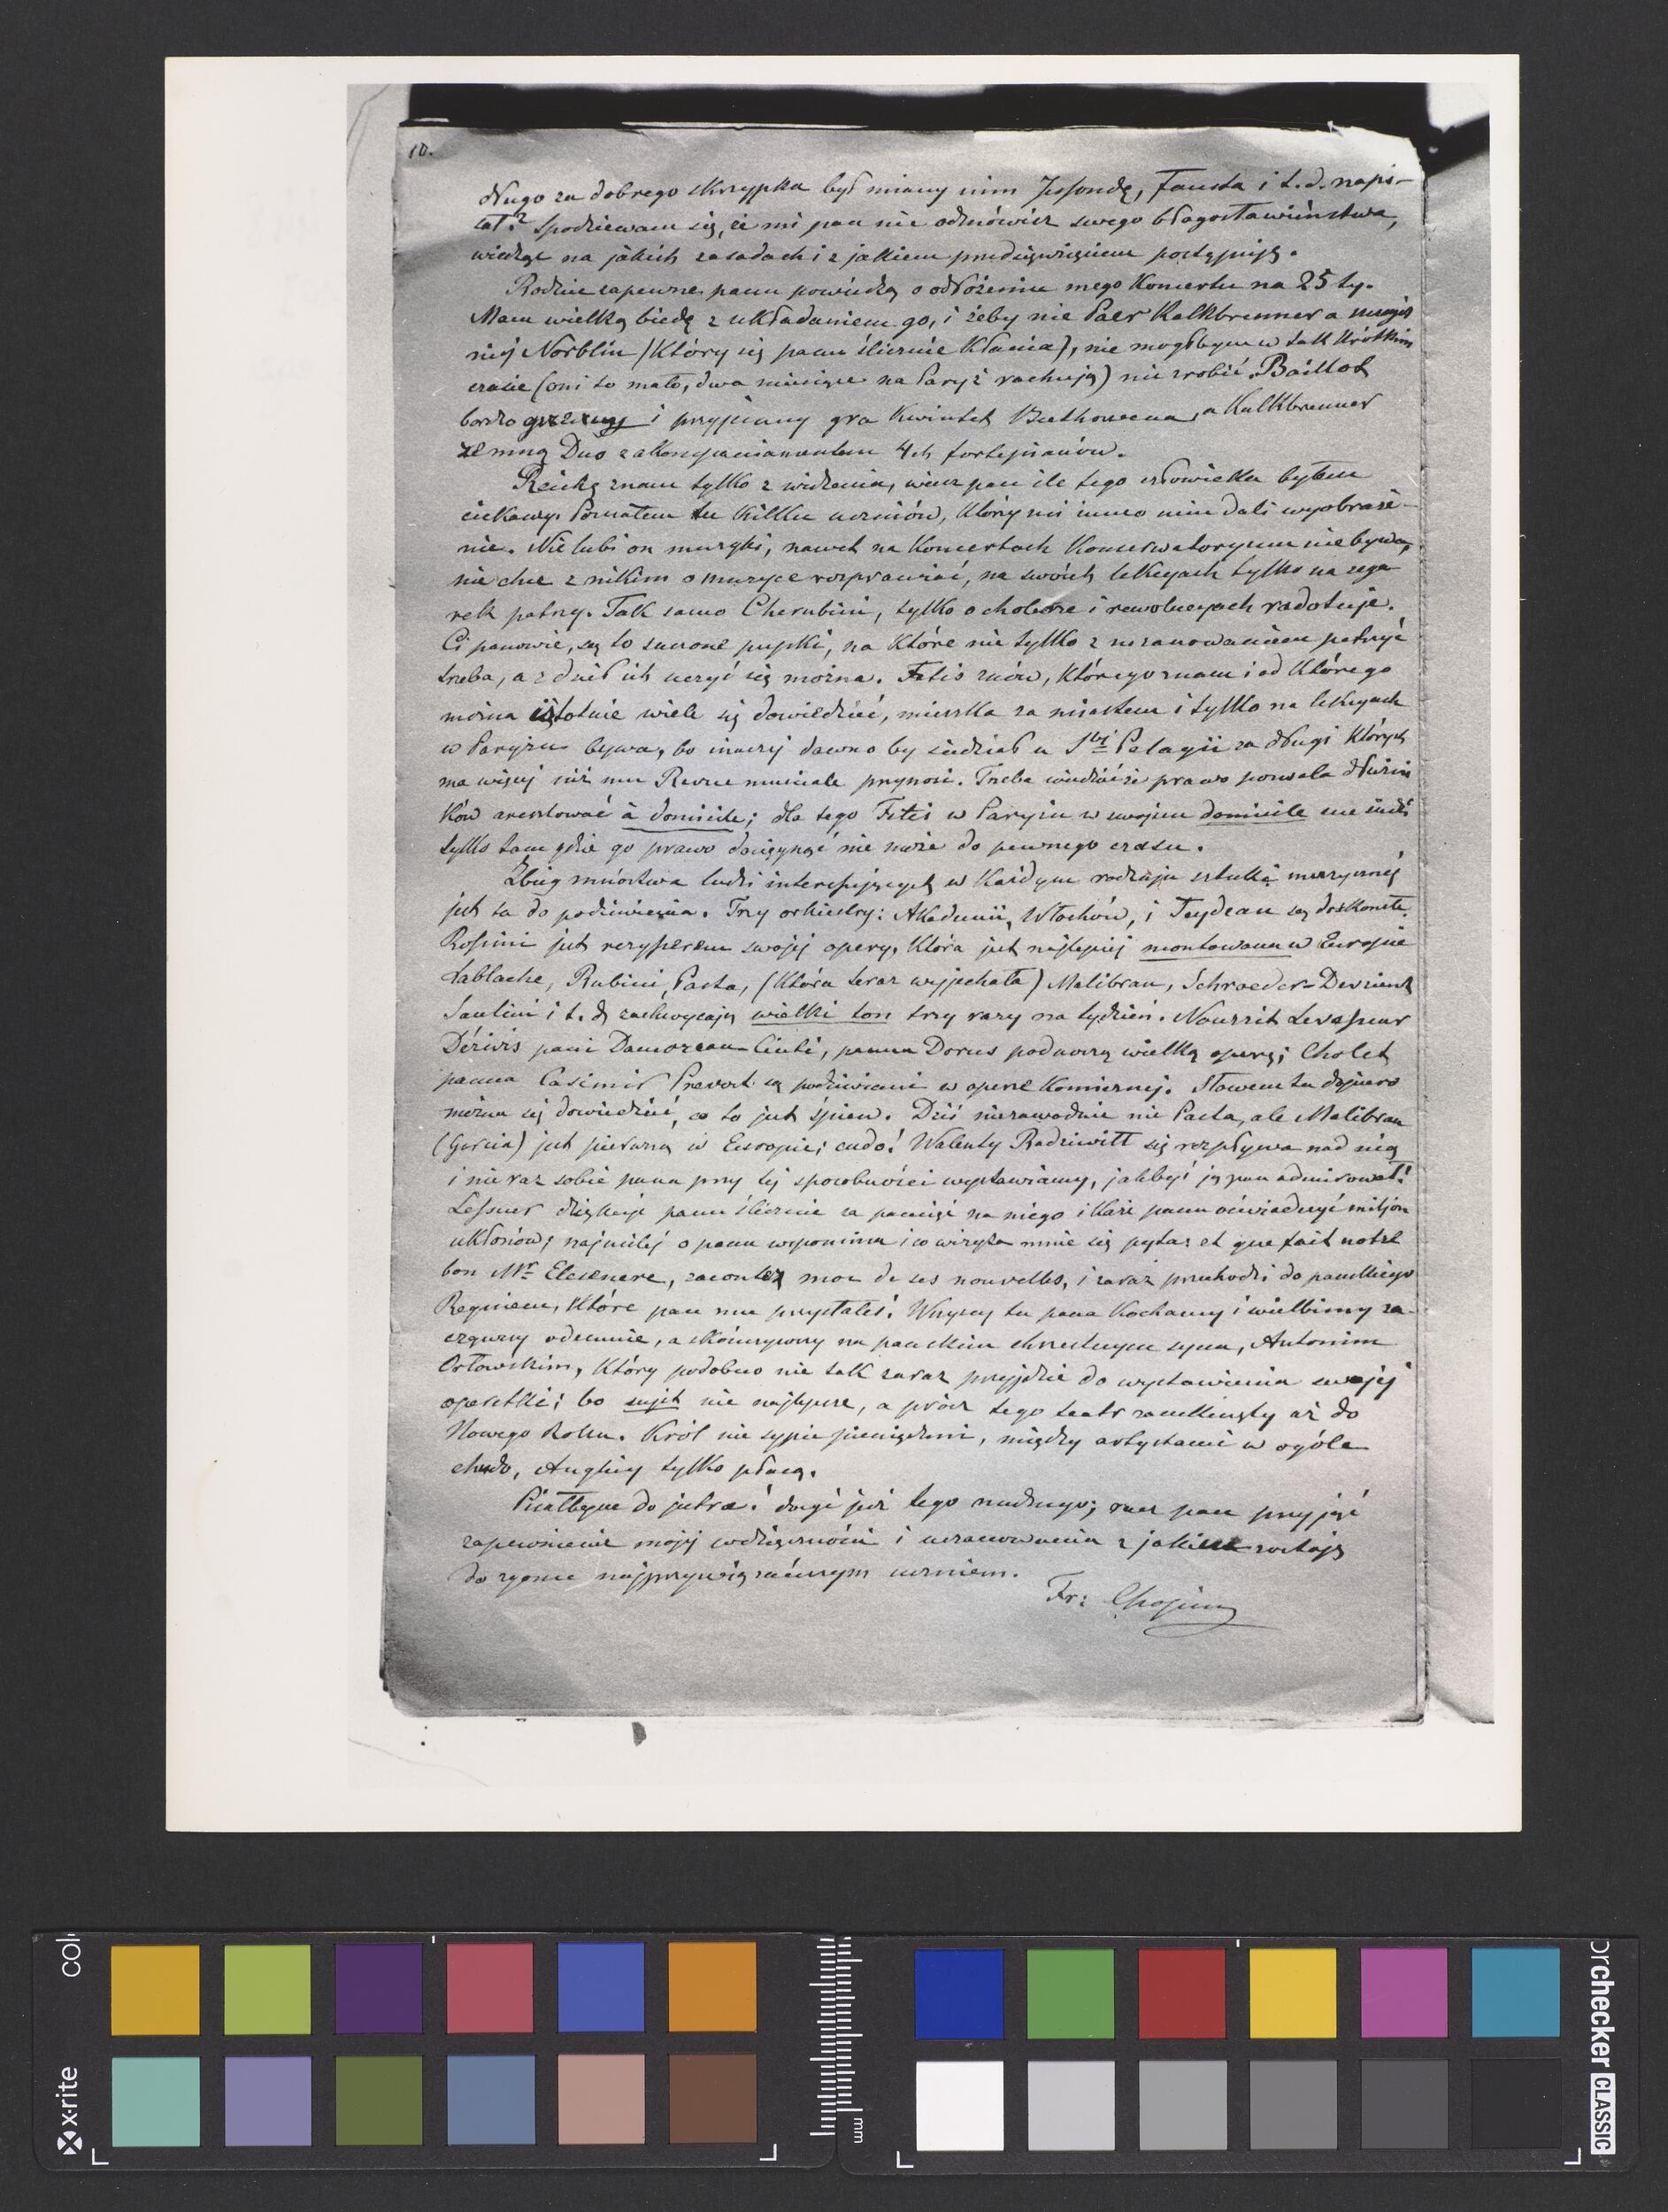 10.
długo za dobrego skrzypka był miany nim Jessondę, Fausta i t.d. napi-
sał? Spodziewam się, że mi pan nie odmówisz swego błogosławieństwa,
wiedząc na jakich zasadach i z jakiem przedsięwzięciem postępuję.
Rodzice zapewne panu powiedzą o odłożeniu mego Koncertu na 25ty.
Mam wielką biedę z układaniem go, i żeby nie Paer Kalkbrenner a
Norblin (Który się panu ślicznie Kłania), nie mogłbym w tak Krótkim
czasie (oni to mało, dwa miesiące na Paryż rachują) nic zrobić. Baillot
bardzo grzeczny i przyjemny gra Kwintet Beethowena, a Kalkbrenner
ze mną Duo z akompaniamentem 4ch fortepianów.
Reichę znam tylko z widzenia, wiesz pan ile tego człowieka byłem
ciekawy. Poznałem tu Kilku uczniów, Którzy mi inne o nim dali wyobraże-
nie. Nie lubi on muzyki, nawet na Koncertach Konserwatoryum nie bywa,
nie chce z nikim o muzyce rozprawiać, na swoich lekcyach tylko na zega
rek patrzy. Tak samo Cherubini, tylko o cholerze i rewolucyach radotuje.
Ci panowie, są to suszone pupki, na Które nie tylko z uszanowaniem patrzyć
trzeba, a z dzieł ich uczyć się można. Fetis znów, Którego znam i od Którego
można istotnie wiele się dowiedzieć, mieszka za miastem i tylko na lekcyach
w Paryżu bywa, bo inaczej dawno by siedział u Stej Pelagii za długi Których
ma więcej niż mu Revue musicale przynosi. Trzeba wiedzieć że prawo pozwala dłużni
Ków aresztować à domicile; dla tego Fetis w Paryżu w swojem domicile nie siedzi
tylko tam gdzie go prawo dosięgnąć nie może do pewnego czasu.
Zbieg mnóstwa ludzi interesujących w Każdym rodzaju sztuki muzycznej
jest tu do podziwienia. Trzy orkiestry: Akademii, Włochów, i Feydeau są doskonałe.
Rossini jest reżyserem swojej opery, Która jest najlepiej montowana w Europie
Lablache, Rubini, Pasta, (Która teraz wyjechała) Malibran, Schroeder-Devrient
Santini i t. d. zachwycają wielki ton trzy razy na tydzień. Nourrit Levasseur
Dérivis pani Damoreau-Cinti, panna Dorus podnoszą wielką operę; Cholet
panna Casimir Prevost są podziwiani w operze Komicznej. Słowem tu dopiero
można się dowiedzieć, co to jest śpiew. Dziś niezawodnie nie Pasta, ale Malibran
(Garcia) jest pierwszą w Europie; cudo! Walenty Radziwiłł się rozpływa nad nią
i nie raz sobie pana przy tej sposobności wystawiamy, jakbyś ją pan admirował!
Lesueur dziękuje panu ślicznie za pamięć na niego i Każe panu oświadczyć miljon
ukłonów; najmilej o panu wspomina i co wizyta mnie się pyta: et que fait notre
bon Mr. Elesenere, racontez moi de ses nouvelles, i zaraz przechodzi do pańskiego
Requiem, Które pan mu przysłałeś! Wszyscy tu pana Kochamy i wielbimy za-
cząwszy odemnie, a skończywszy na pańskim chrzestnym synu, Antonim
Orłowskim, Który podobno nie tak zaraz przyjdzie do wystawienia swojej
operetki; bo sujet nie najlepsze, a prócz tego teatr zamknięty aż do
Nowego Roku. Król nie sypie pieniędzmi, między artystami w ogóle
chudo, Anglicy tylko płacą.
Pisałbym do jutra! dosyć już tego nudnego; racz pan przyjąć
zapewnienie mojej wdzięczności i uszanowania z jakiem zostaję
do zgonu najprzywiązańszym uczniem.
Fr: Chopin